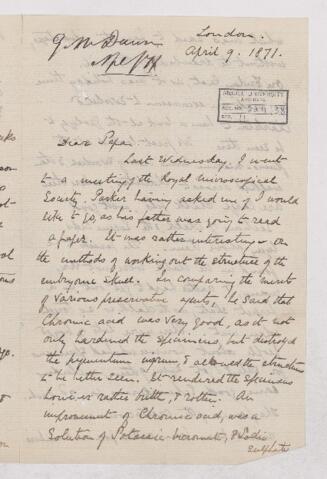 G M Dawson
London.
April 9. 1871.
McGILL UNIVERSITY
ARCHIVES
ACC. NO.
REF. 11
Dear Papa
Last Wednesday I went
to a meeting of the Royal microscopical
Society. Parker having asked me if I would
like to go, as his father was going to read
a paper. It was rather interesting - on
the methods of working out the structure of the
embryonic skull. In comparing the merits
of various preservative agents, he said that
Chromic acid was very good, as it not
only hardened the specimens, but destroyed
the pigmentum nigrum, & allowed the structure
to be better seen. It rendered the specimens
however rather brittle, & rotten. An
improvement of Chromic acid, was a
Solution of Potassic bicromate, & Sodic
sulphate